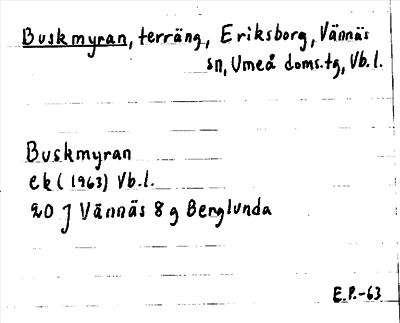 Buskmyran, terräng, Eriksborg, Vännäs
sn, Umeå doms.tg, Vb.l.
Buskmyran
ek (1963) Vb.l.
20 J Vännäs 8 g Berglunda
E.P.-63